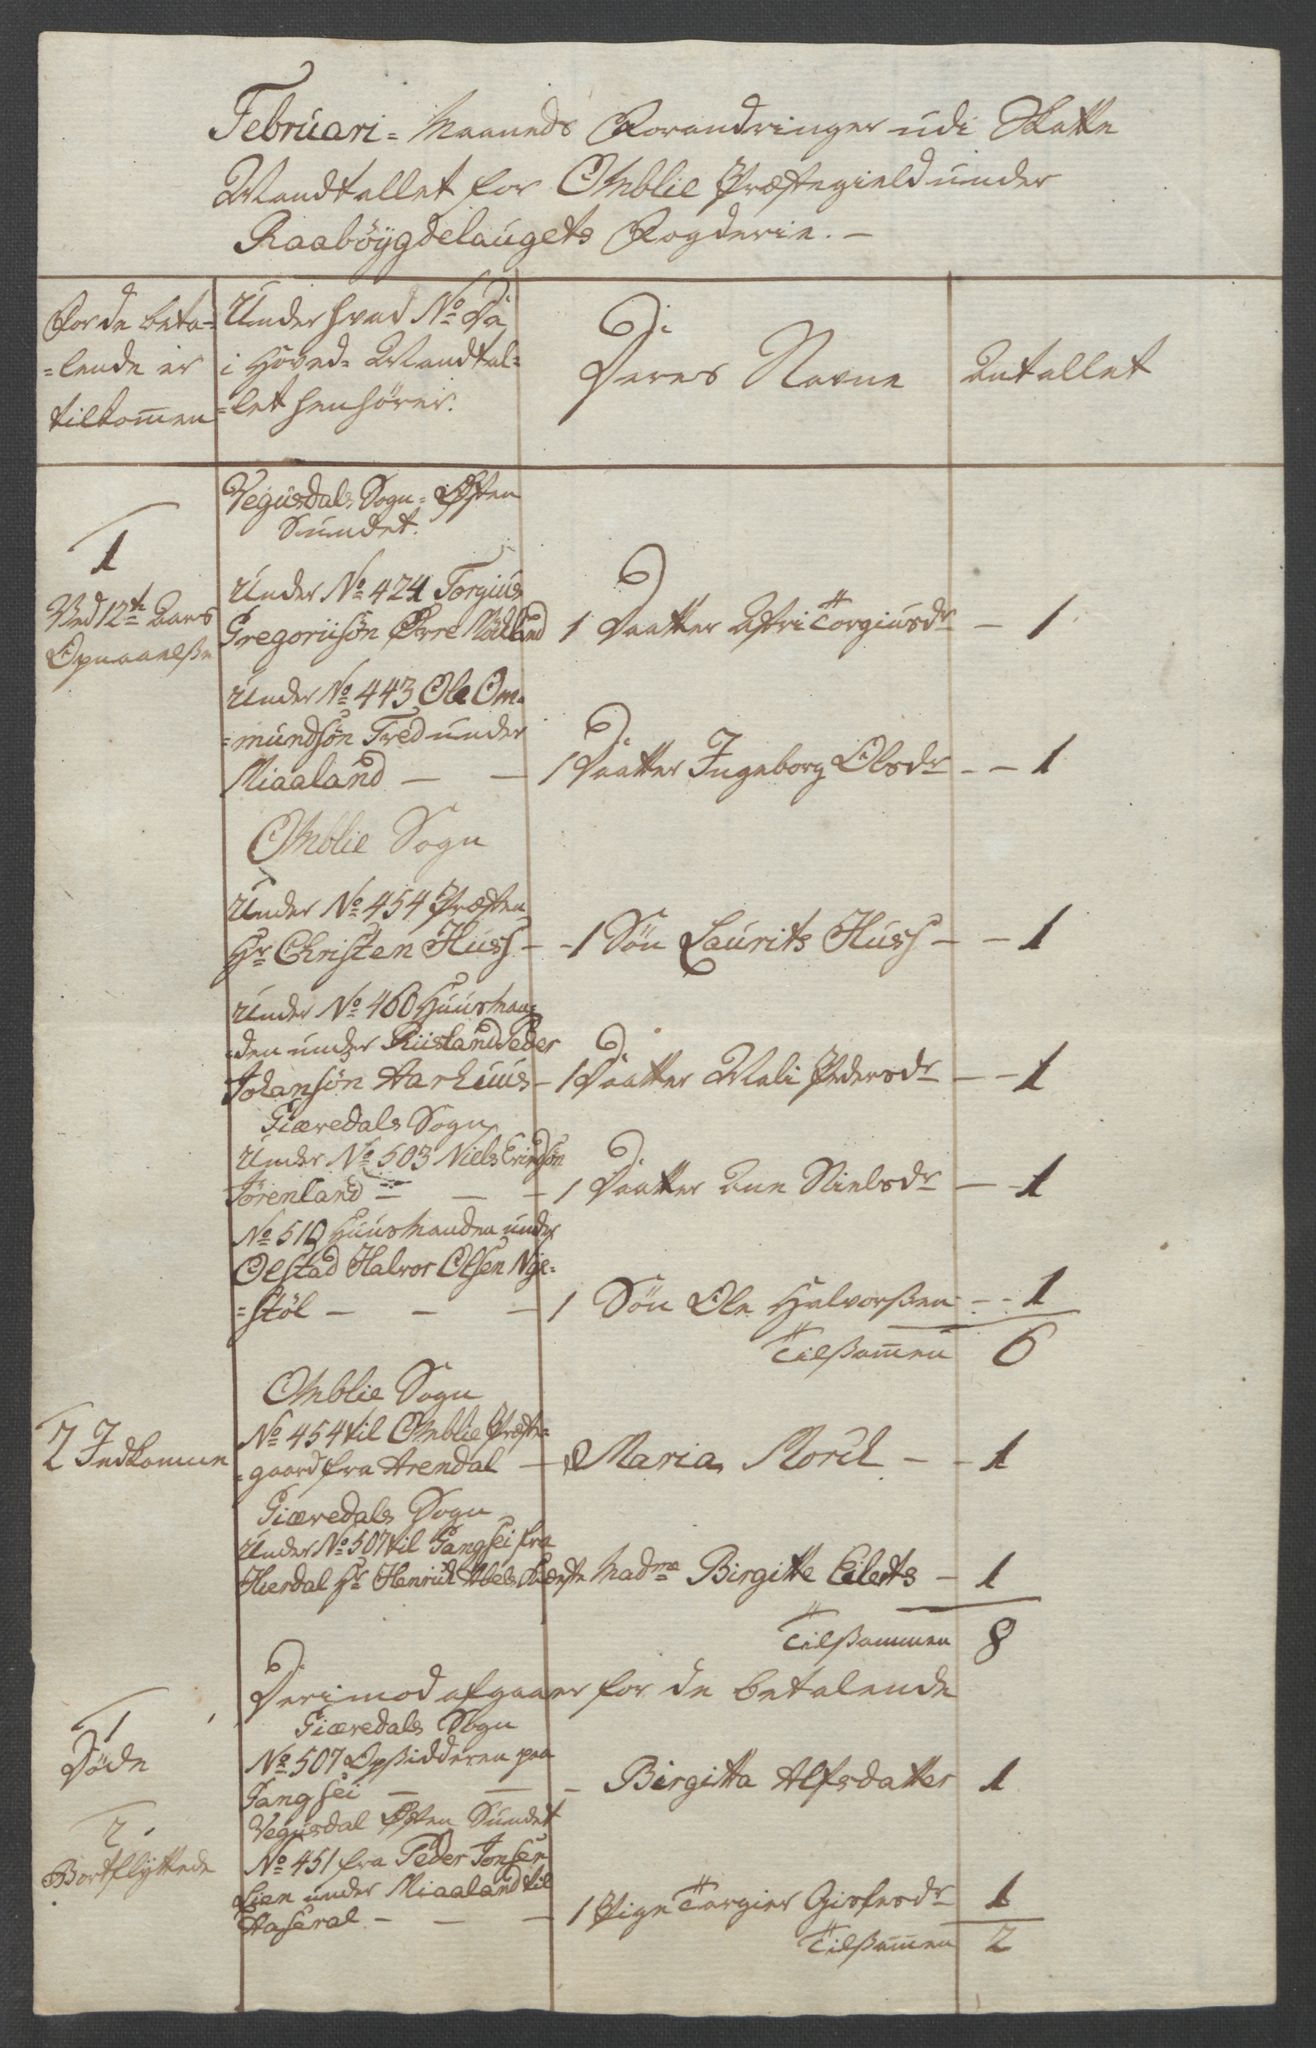 Februari = Maaneds Forandringer udi Skatte
Mandtallet for Omblie Præstegield under
Raabÿgdelaugets Fogderie. —
For de beta=
=lende er
tilkom̄en
Under hvad No. Di
i Hoved= Mandtal=
=let henhörer.
Deres Navne
Antallet
Vegusdals Sogn = Østen
Sundet.
1
Ved 12te Aars
Opnaaelße
Under No. 424 Torgius
Gregoriisön Øvre 
1 Daatter Astri Torgiusdr — 1
Under No. 443 Ole Om=
=mundsön Tred under
Miaaland — — 1 Daatter Ingeborg Olsdr - — 1
Omblie Sogn
Under No. 454 Præsten
Hr. Christen Huss - -1 Sön Laurits Huss — — 1
Under No. 460 Huusman=
=den under Riisland Peder
Johansön Aarhuus - 1 Daatter Mali Pedersdr — — 1
Giæredals Sogn
Under No. 503 Niels
Törenland — — - 1 Daatter Ane Nielsdr — - 1
No. 510 Huusmanden under
Oelstad Halvor Olsen Nye=
=stöl — — — 1 Sön Ole Halvorßen - - 1
Tilßam̄en 6
Omblie Sogn
2 Indkomne
No. 454 til Omblie Præste=
=gaard fra Arendal — Maria Morch — - 1
Giæredals Sogn
Under No. 507 til Gangsei fra
Hierdal Hr. Henrich Abels Kiæreste Madme Birgitte Eilerts — 1
Tilßammen 8
Derimod afgaaer for de betalende
1
Döde
Giæredals Sogn
No. 507 Opsidderen paa
Gangsei — — - Birgitta Alfsdatter 1
2
Bortflÿttede
Vegusdal Østen Sundet
No. 451 fra Peder Jonsen
Lien under Miaaland til
Haseral — — — 1 Pige Torgier dr 1
Tilßam̄en 2